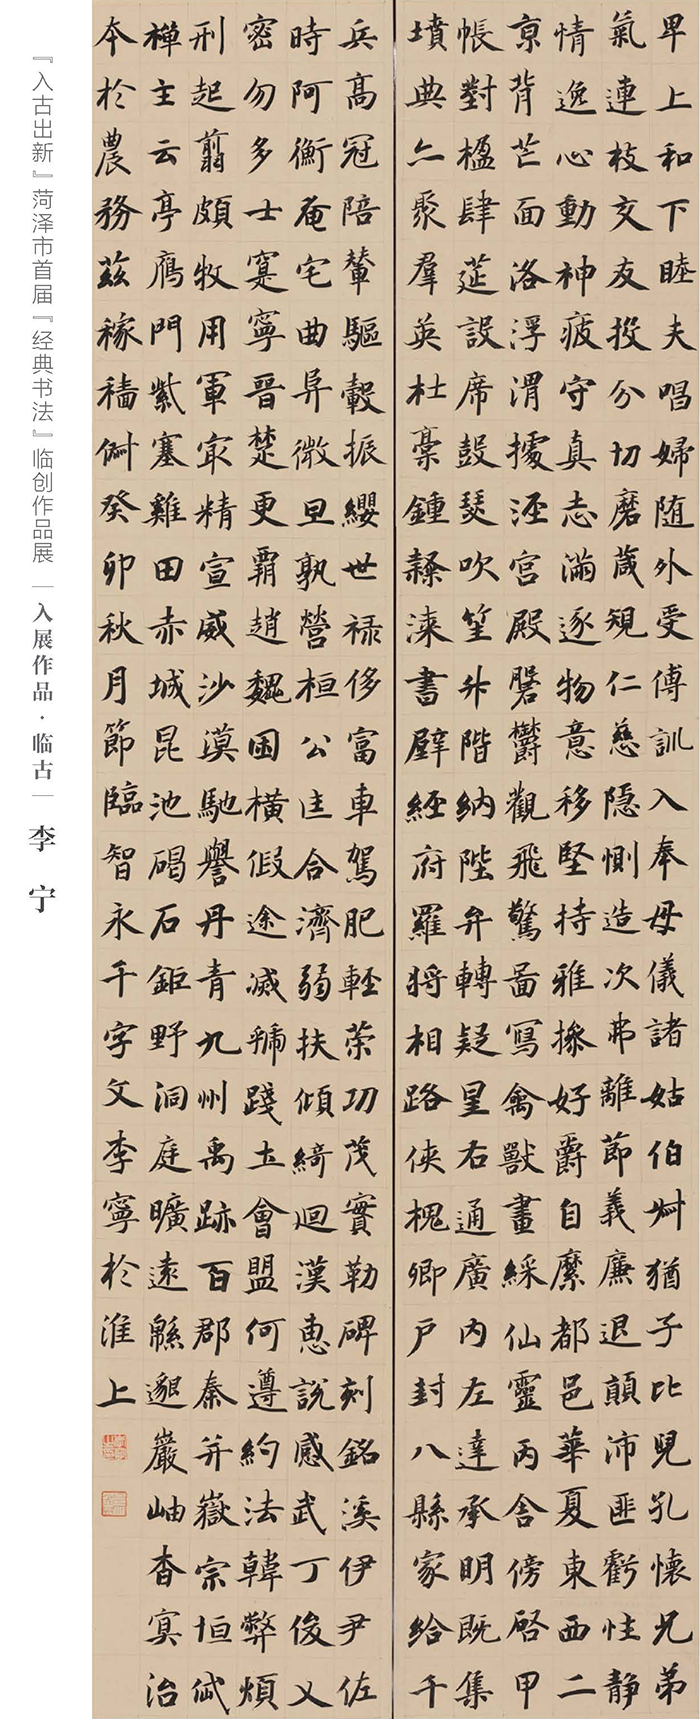 卑上和下睦夫唱婦随外受傅訓入奉母儀諸姑伯叔猶子比兒孔懷兄弟
氣連枝交友投分切磨箴規仁慈隱惻造次弗離節義廉退顛沛匪虧性静
情逸心動神疲守真志滿逐物意移堅持雅操好爵自縻都邑華夏東西二
京背芒面洛浮渭據涇宮殿磐欝觀飛驚啚寫禽獸畫綵仙靈丙舍傍啓甲
帳對楹肆莚設席鼓瑟吹笙升階納陛弁轉疑星右通廣內左達承明既集
墳典亦聚羣英杜稾鍾隸漆書壁經府羅將相路俠槐卿戶封八縣家給千
兵高冠陪輦驅轂振纓世禄侈富車駕肥軽策功茂實勒碑刻銘溪伊尹佐
時阿衡奄宅曲阜微旦孰營桓公匡合濟弱扶傾綺迴漢惠說感武丁俊乂
密勿多士寔寧晉楚更霸趙魏困橫假途滅虢踐土會盟何遵約法韓弊煩
刑起翦頗牧用軍最精宣威沙漠馳譽丹青九州禹跡百郡秦并嶽宗恒岱
禪主云亭鴈門紫塞雞田赤城昆池碣石鉅野洞庭曠遠緜邈巖岫杳冥治
本於農務茲稼穡俶癸卯秋月節臨智永千字文李寧於淮上
『入古出新』菏泽市首届『经典书法』临创作品展｜入展作品·临古｜李宁